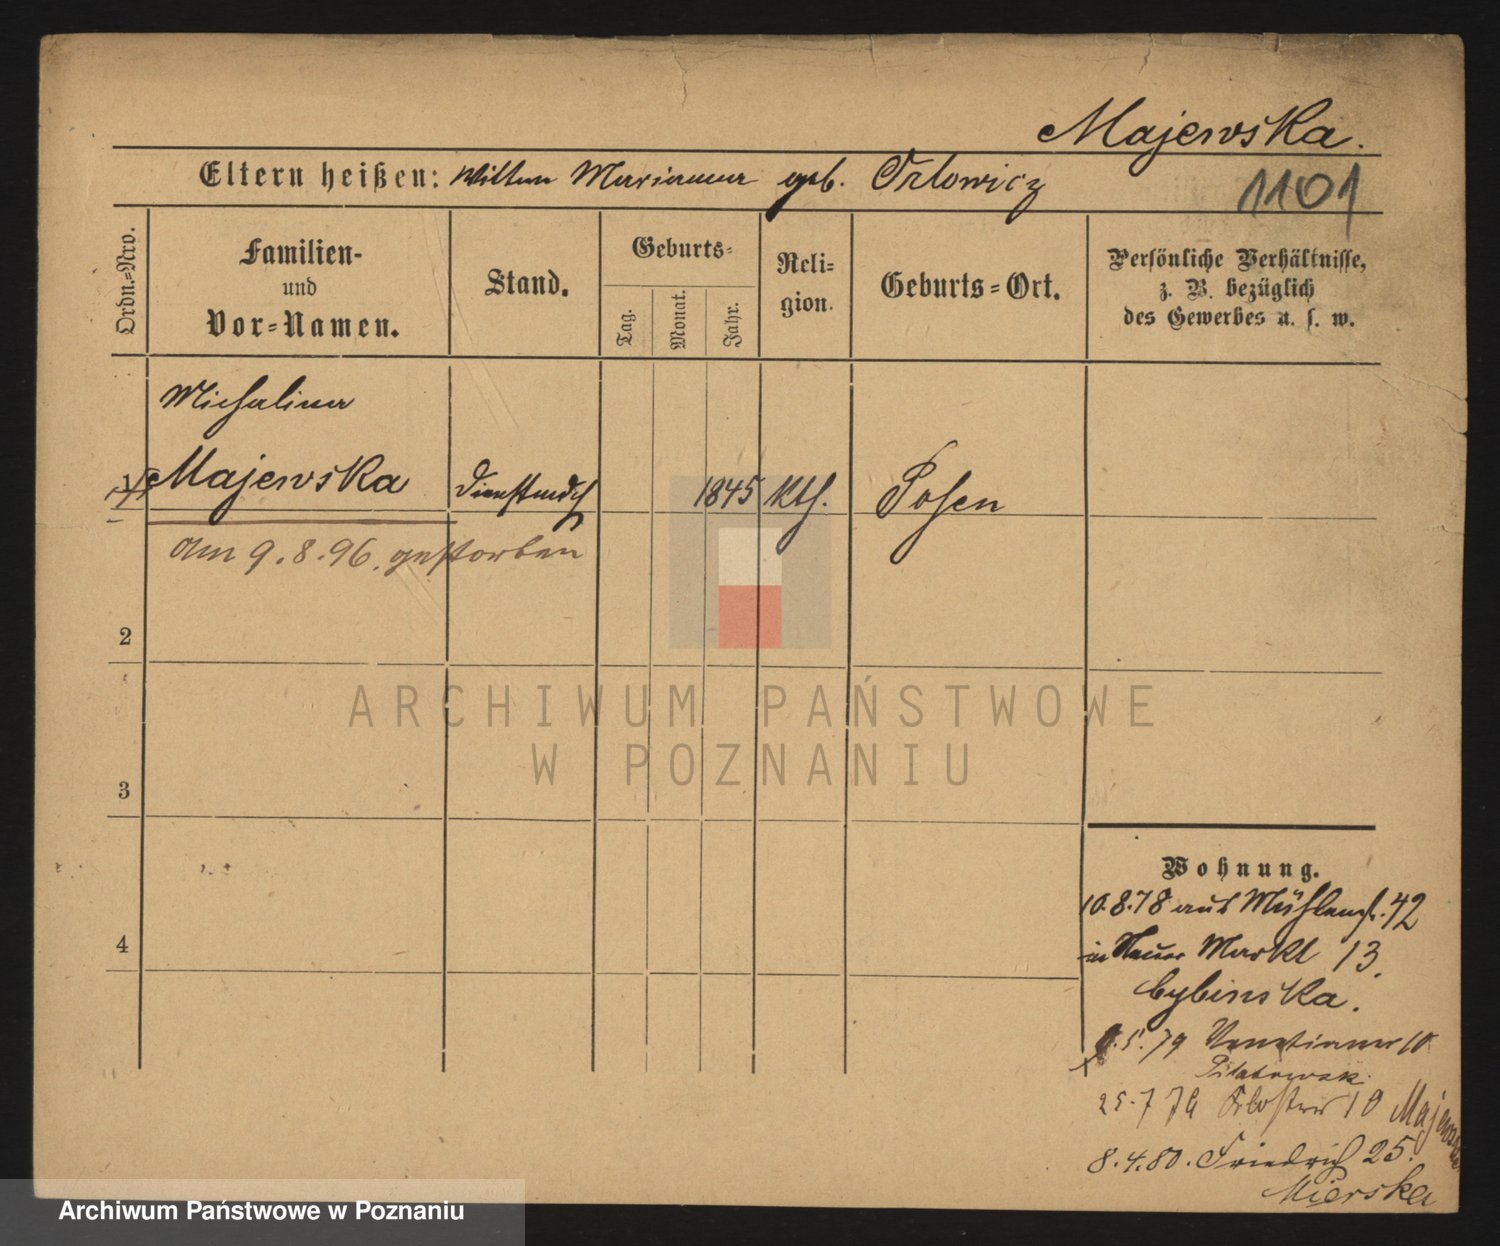 Majewska.
Eltern heißen: Wittwe Marianna geb. Orlowicz
1101
Ordn.=Nro.
Familien-
und
Vor=Namen.
Stand.
Geburts=
Tag.
Monat.
Jahr.
Reli=
gion.
Geburts=Ort.
Persönliche Verhältnisse,
z. B. bezüglich
des Gewerbes u. s. w.
Michalina
Majewska Dienstmdch 1845 kth. Posen
am 9.8.96. gestorben
2
3
4
ARCHIWUM PAŃSTWOWE
W POZNANIU
Wohnung.
10.8.78 aus Mühlenstr. 42
in Neuer Markt 13.
Cybinska.
.5.79 Venetianer 10
25.7.79 Kloster 10 Majewska
8.4.80. Friedrich 25.
Mierska
Archiwum Państwowe w Poznaniu